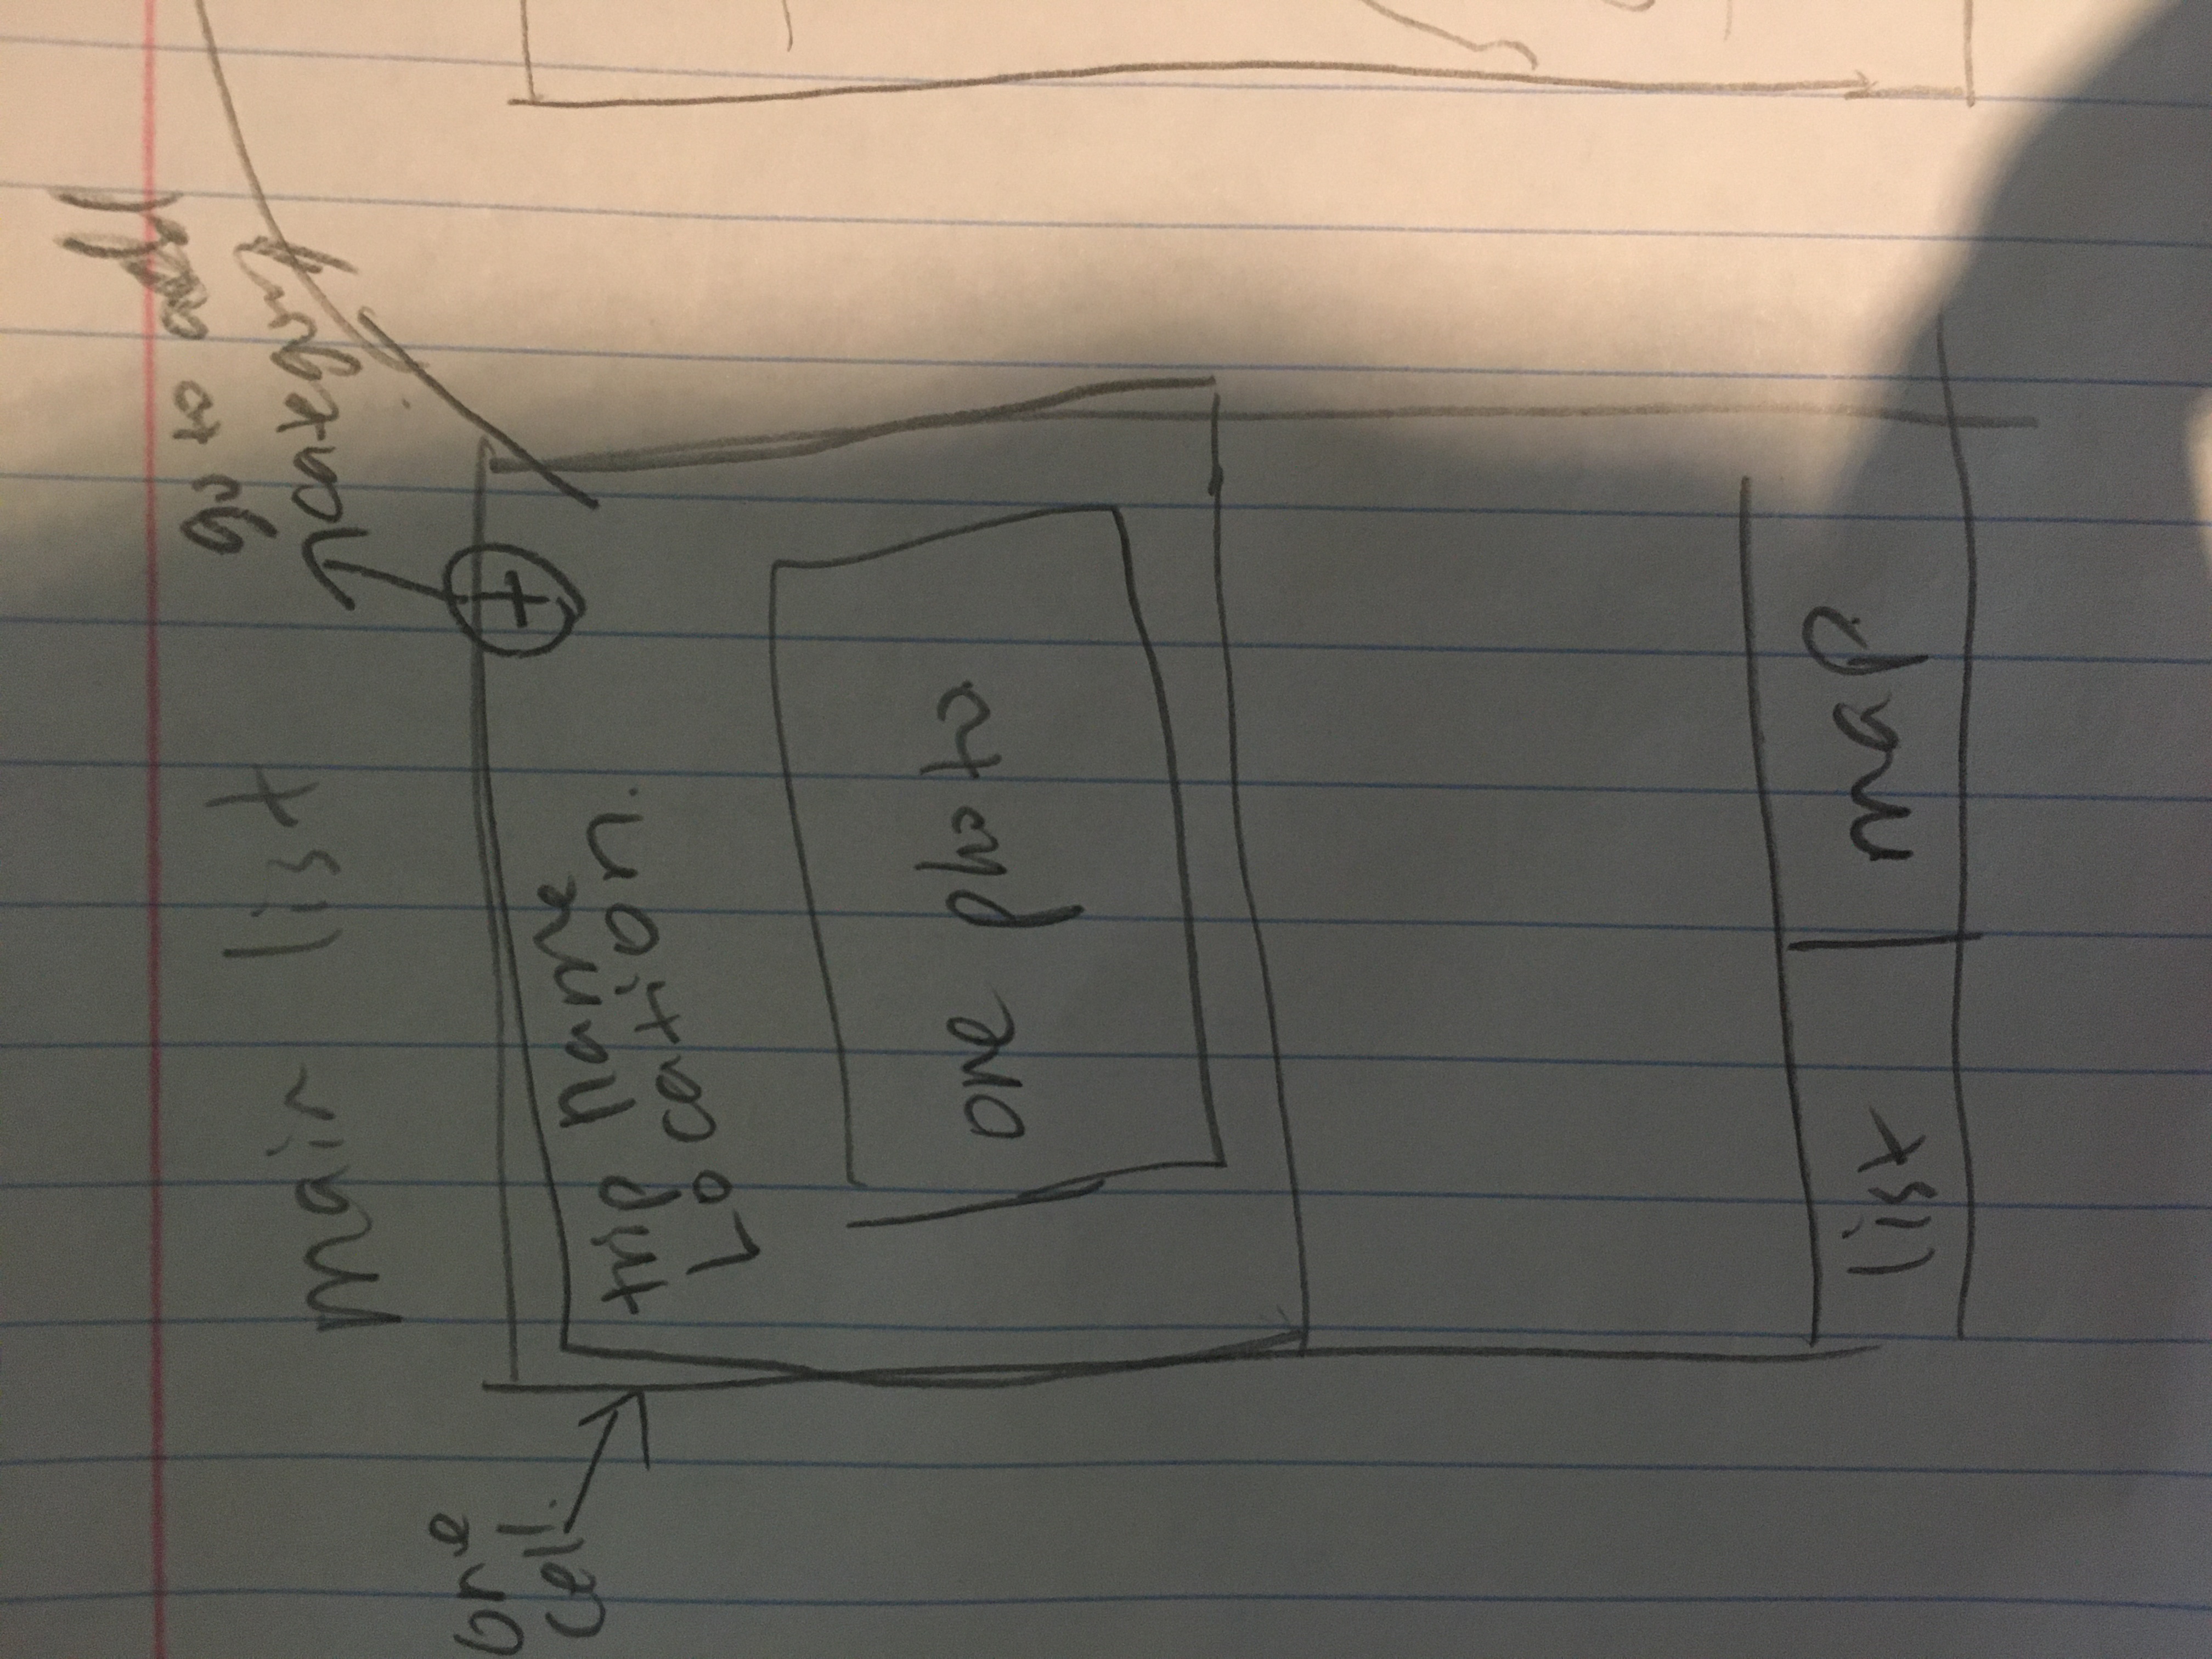 main list
go to add
category
one
cell.
+
trip name
Location.
one photo
list
map